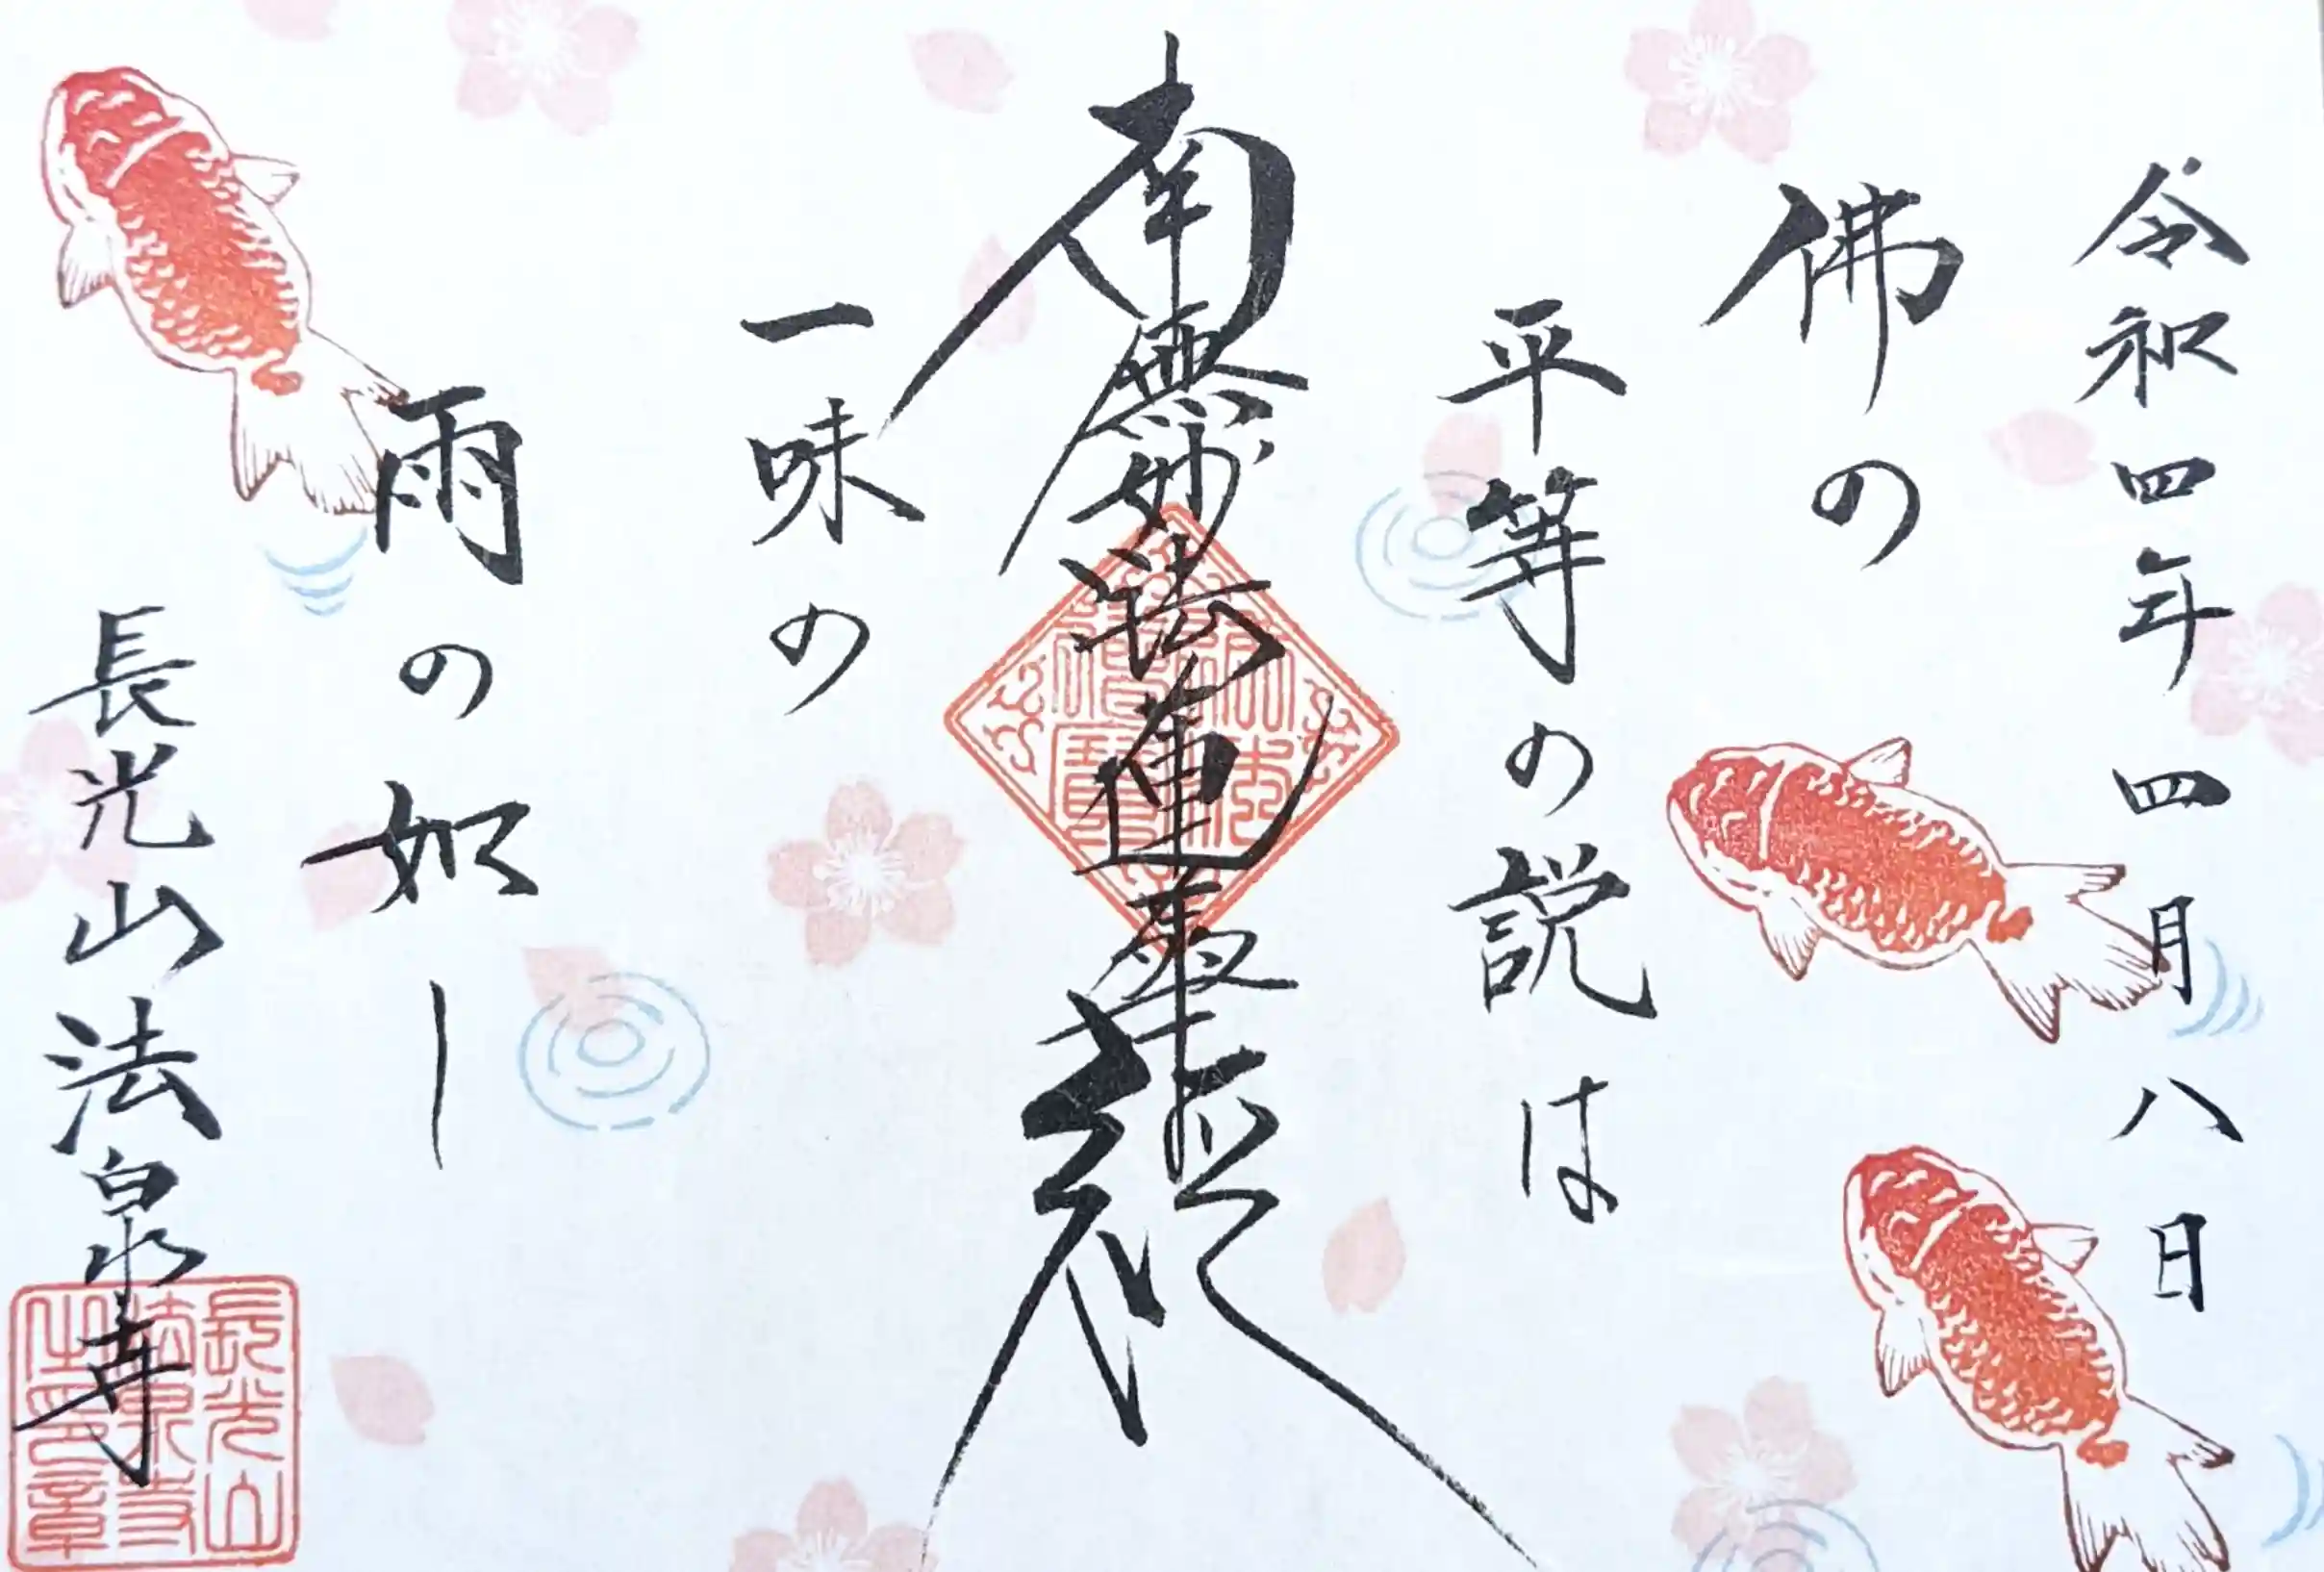 令和四年四月八日
佛の
平等の説は
南無妙法蓮華経
一味の
雨の如し
長光山法泉寺
長光山
法泉寺
之印章